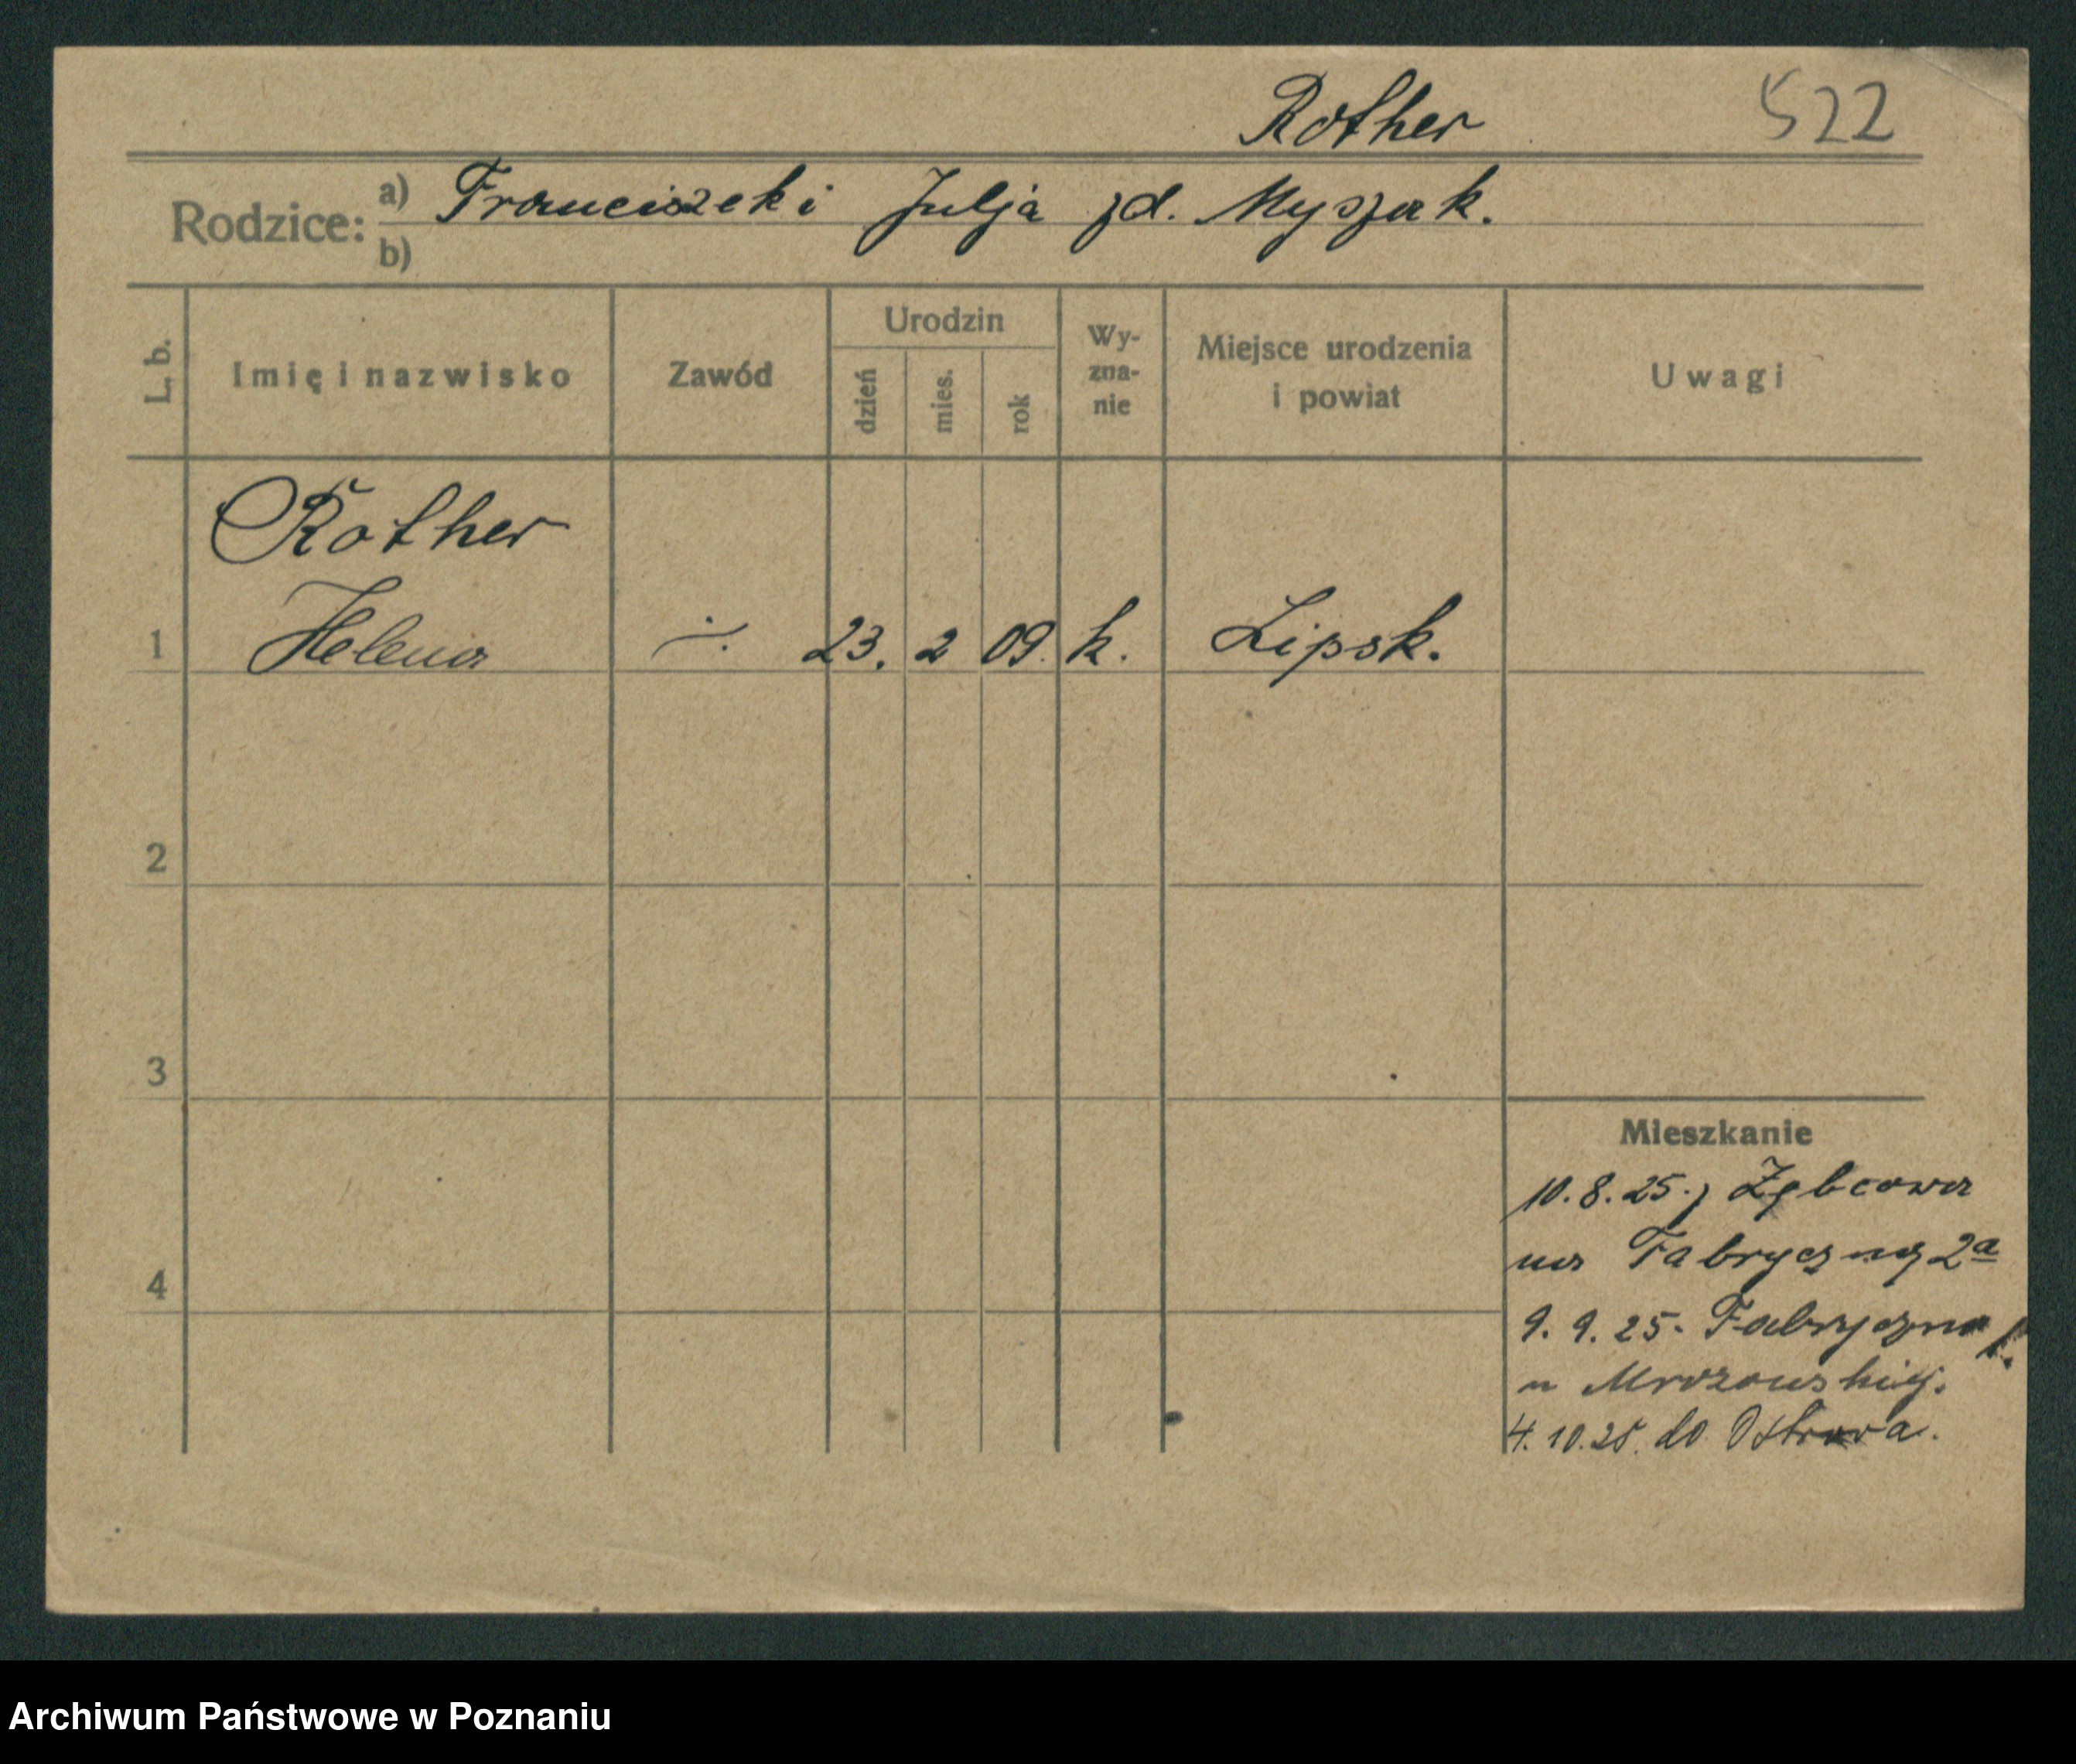 Rother 522
Rodzice: a) Franciszek i Julja zd. Myszak.
b)
L. b. Imię i nazwisko Zawód Urodzin dzień mies. rok Wy-zna-nie Miejsce urodzenia i powiat Uwagi
Rother
1 Helena 23. 2 09. k. Lipsk.
2
3
Mieszkanie
10.8.25. z Zębcowa
4 na Fabryczną 2a
9.9.25. Fabryczna
u Mrozowskiej.
4.10.25. do Ostrowa.
Archiwum Państwowe w Poznaniu